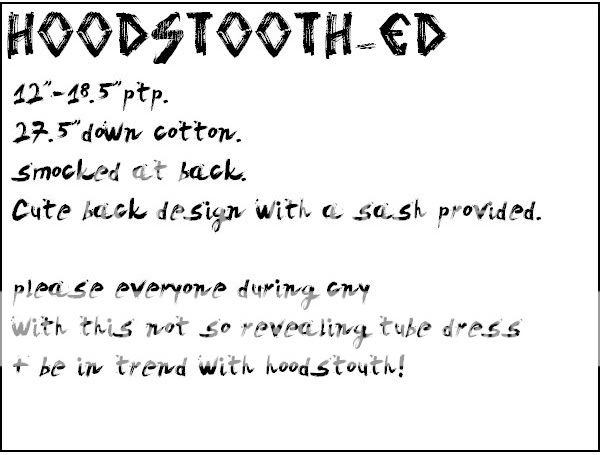 HOODSTOOTH-ED
12"-18.5"ptp.
27.5"down cotton.
smocked at back.
Cute back design with a sash provided.
please everyone during cny
with this not so revealing tube dress
+ be in trend with hoodstouth!